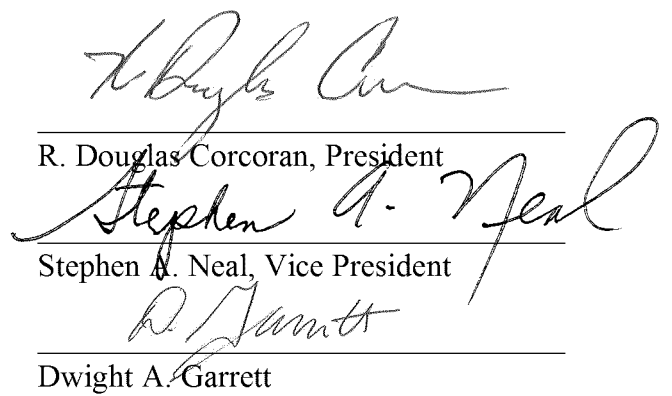 R Douglas Cor
R. Douglas Corcoran, President
Stephen A. Neal
Stephen A. Neal, Vice President
D. Garrett
Dwight A. Garrett